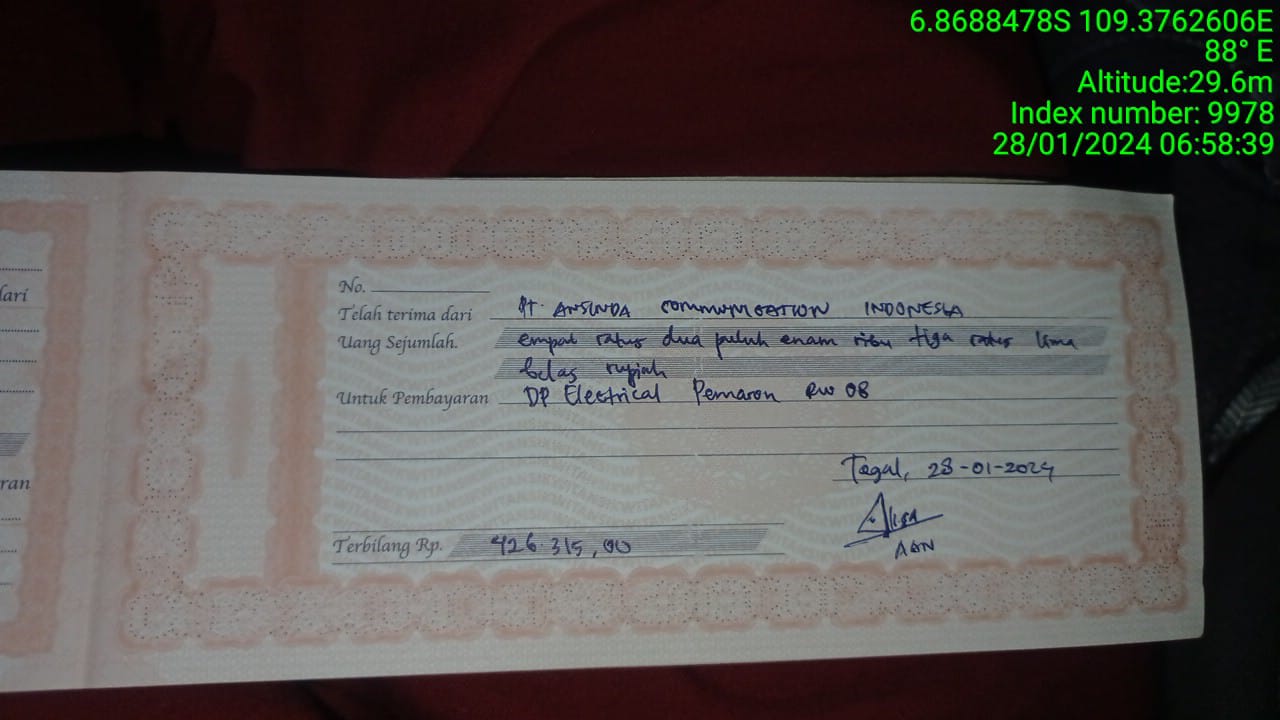 6.8688478S 109.3762606E
88° E
Altitude:29.6m
Index number: 9978
28/01/2024 06:58:39
dari
ran
No.
Telah terima dari PT. ANSINDA COMMUNICATION INDONESIA
Uang Sejumlah. empat ratus dua puluh enam ribu tiga ratus lima
belas rupiah
Untuk Pembayaran DP Electrical Pemaron RW 08
Tegal, 28-01-2024
AAN
Terbilang Rp. 426.315,00